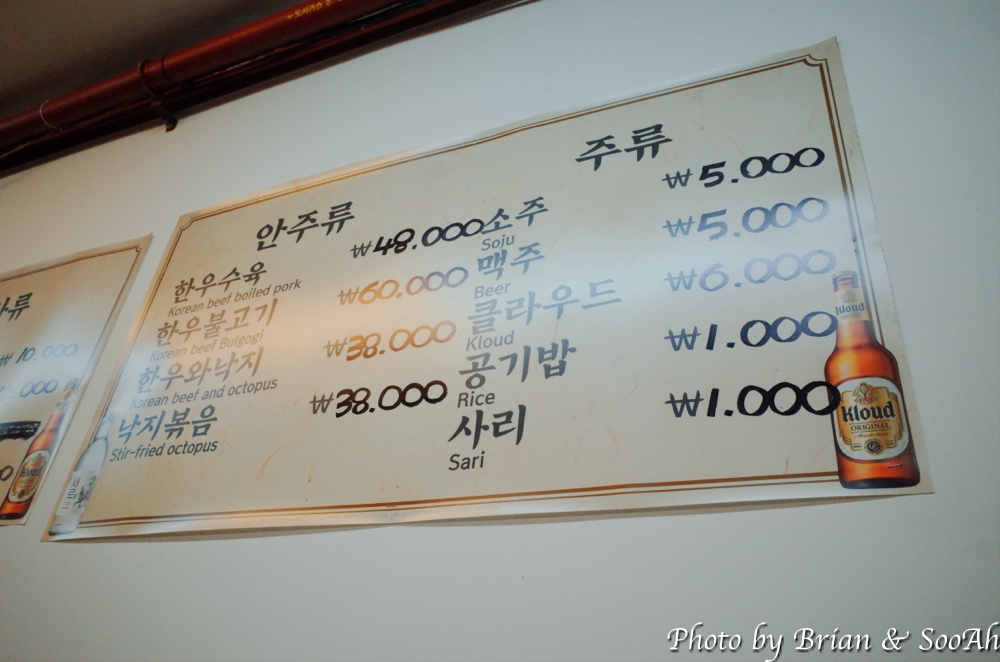 도시가스
안주류
한우수육 ₩48.000
Korean beef boiled pork
한우불고기 ₩60.000
Korean beef Bulgogi
한우와낙지 ₩38.000
Korean beef and octopus
낙지볶음 ₩38.000
Stir-fried octopus
주류
소주 ₩5.000
Soju
맥주 ₩5.000
Beer
클라우드 ₩6.000
Kloud
공기밥 ₩1.000
Rice
사리 ₩1.000
Sari
Kloud
Kloud
ORIGINAL
류
₩10.000
000
Kloud
Photo by Brian & SooAh